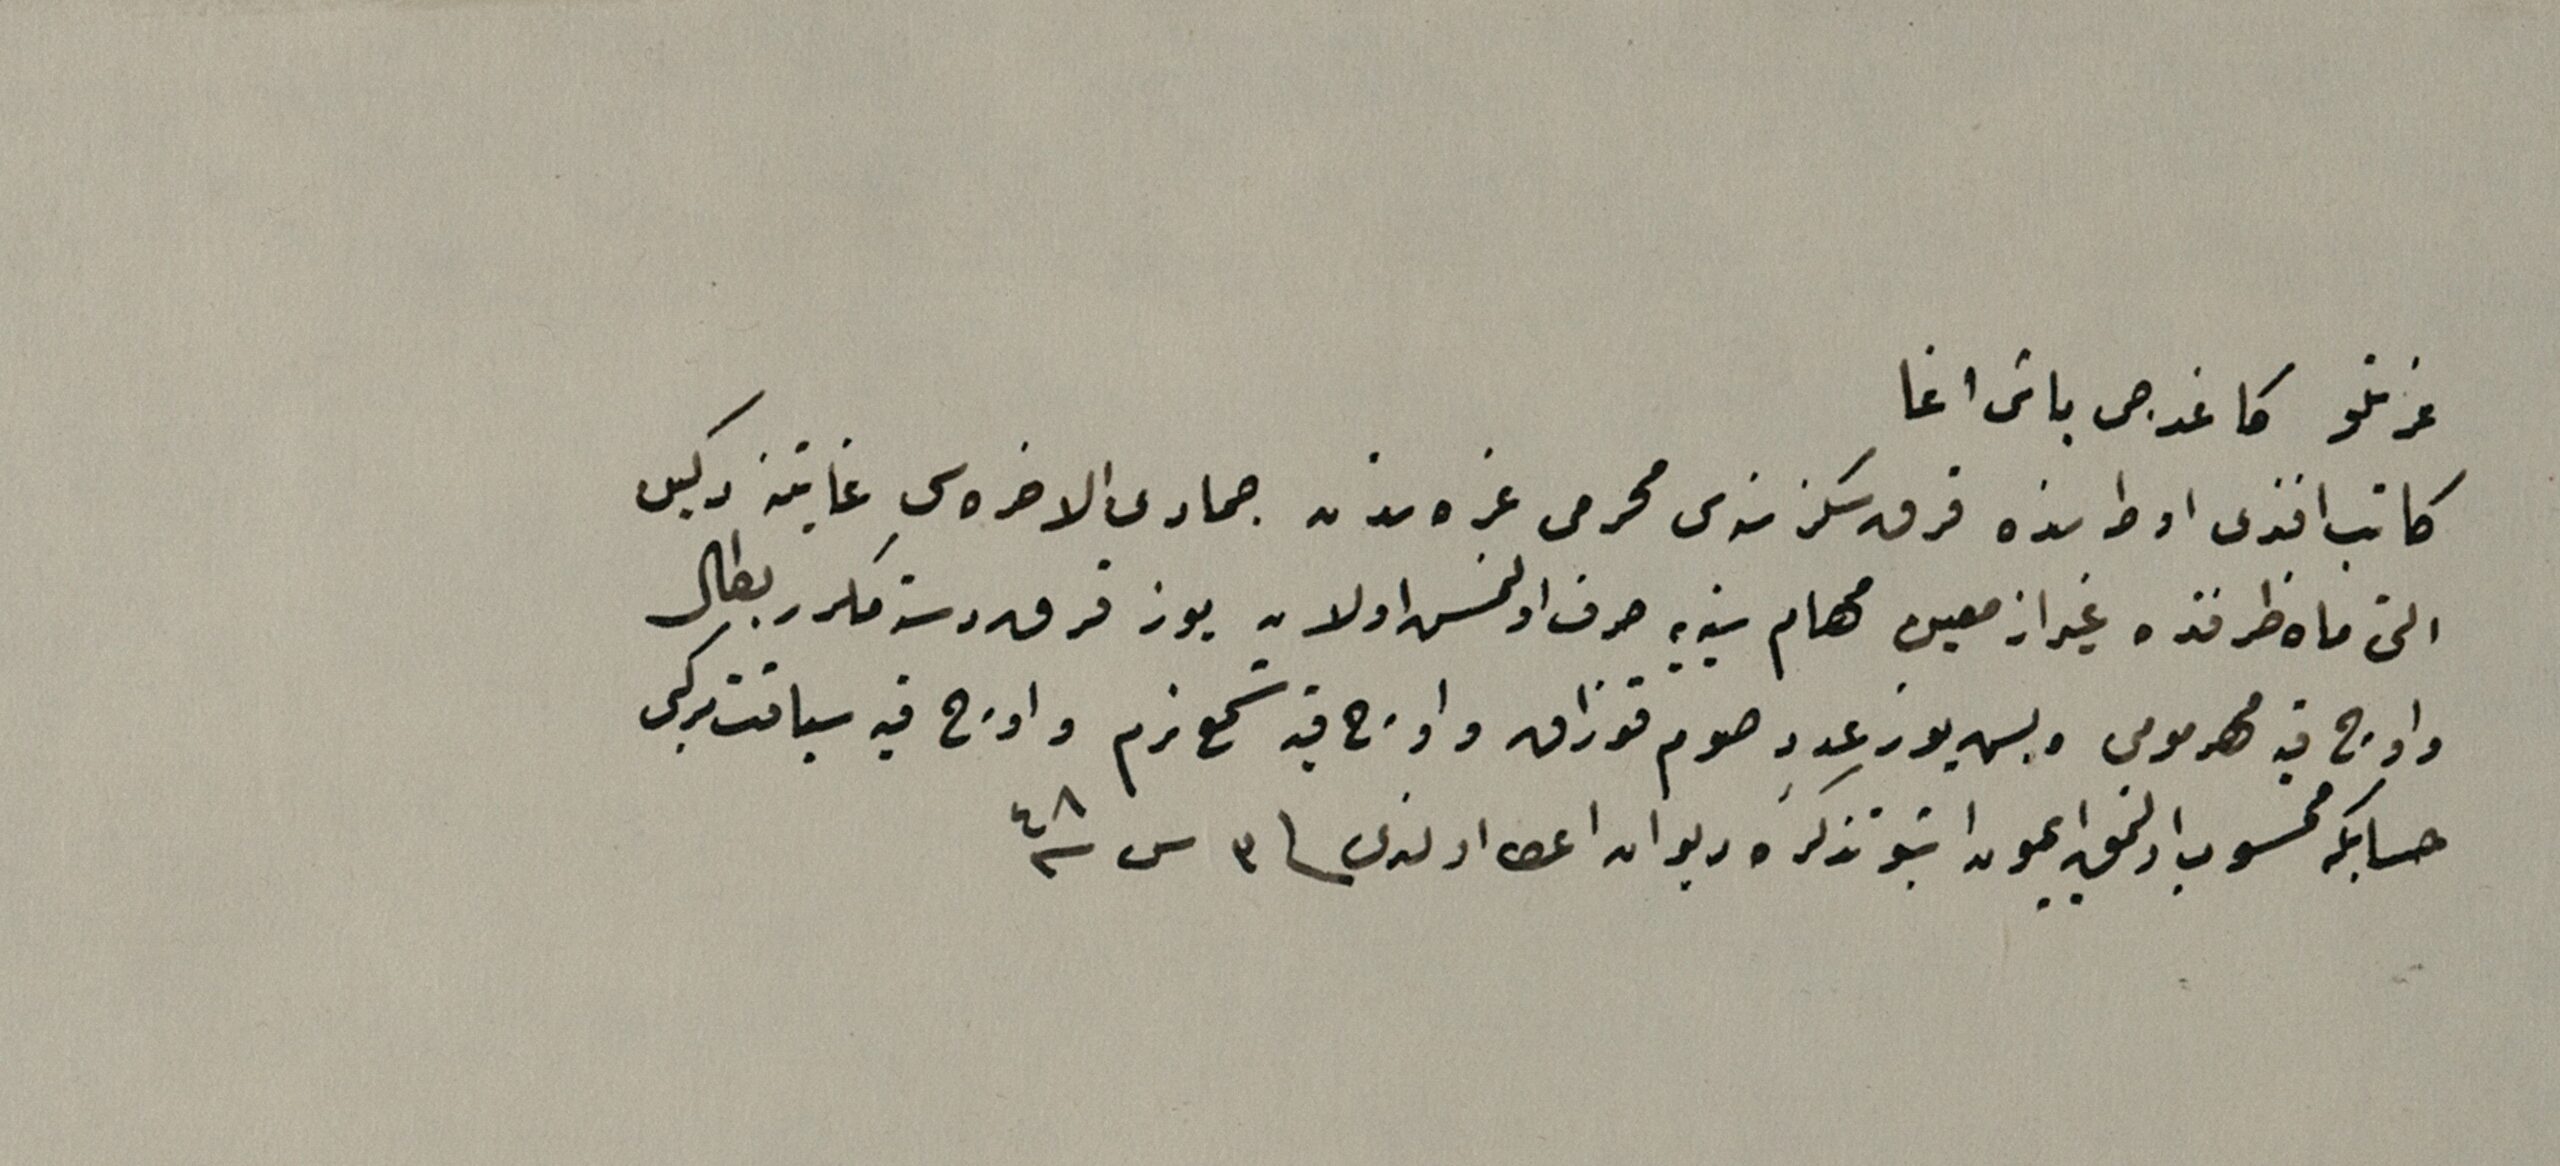 عزتلو كاغدجی باشی اغا
كاتب افندی اوطه‌سنده قرق سكز سنه‌سی محرمی غره‌سندن جمادی الاخره‌سی غایتنه دكین
التی ماه ظرفنده غیر از معین مهام سنیه‌یه صرف اولنمش اولان یوز قرق دسته مكرر بطال
و اوچ قیه مهر مومی و بش یوز عدد صوم قوزاق و اوچ قیه شمع نرم و اوچ قیه سیاقت مركبی
حسابكه محسوب اولنمق ایچون اشبو تذكرهٔ دیوان اعطا اولندی ٣ س سنه ٤٨